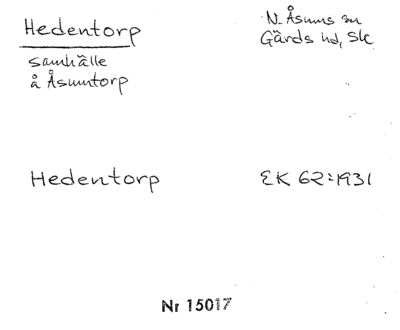 Hedentorp
N. Åsums sn
Gärds hd, Sk.
samhälle
å Åsumtorp
Hedentorp
EK 62:1931
Nr 15017